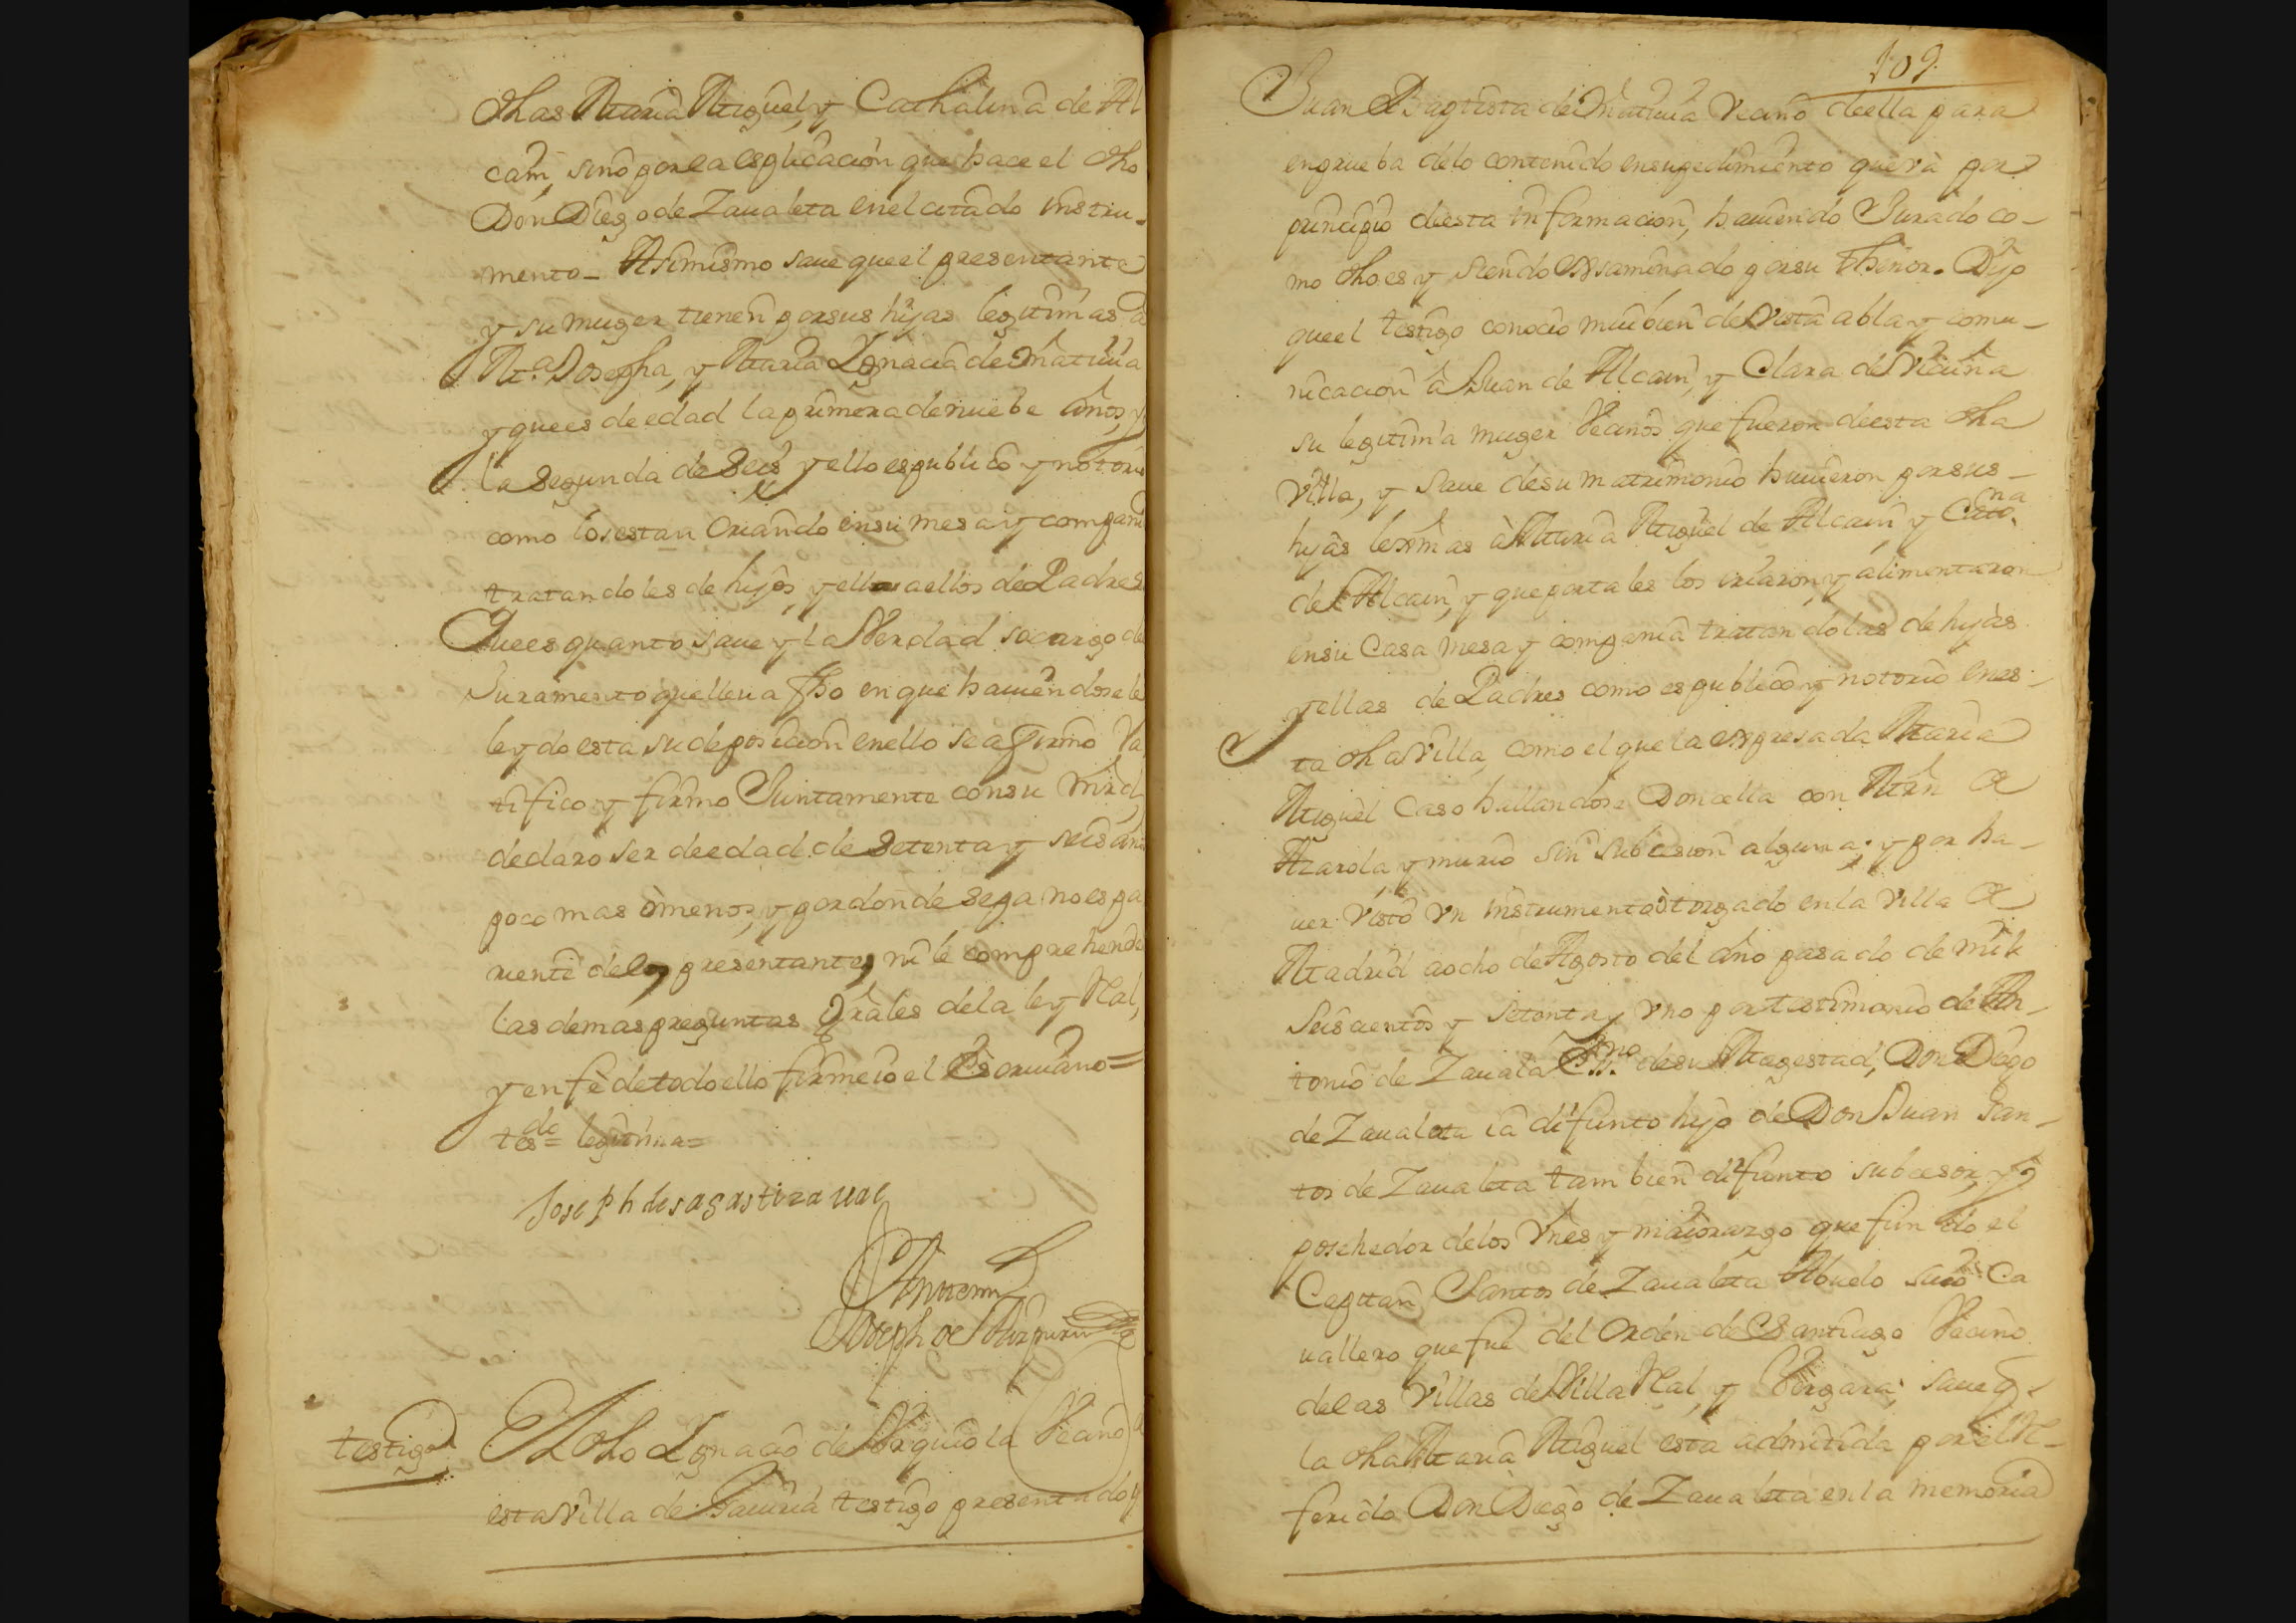 dhas Maria Miguel, y Cathalina de Al
cain, sino por la esplicacion que hace el dho
Don Diego de Zaualeta en el citado instru-
mento_ Asimismo saue que el presentante
y su muger tienen por sus hijas legitimas a
M.ª Josepha, y Maria Ignacia de Maturia
y que es de edad la primera de nuebe años, y
la segunda de Seis y ello es publico y notorio
como los estan Criando en su mesa y compañi
tratandoles de hijos, y ellas a ellos de Padres
Que es quanto saue y la Verdad so cargo de
Juramento que lleua fho en que hauiendosele
leydo esta su deposicion en ello se afirmo Ra
tifico y firmo Juntamente con su mrd,
declaro ser de edad de Setenta y seis año
poco mas ò menos, y por donde sepa no es pa
riente de los presentantes, ni le comprehende
las demas preguntas Grales de la ley Real,
y en fè de todo ello firme io el Escriuano=
tesdo= legitima=
Joseph de sagastizaual
Antemi
Joseph de
testigo El dho Ignacio de Vrquiola Vecino
esta Villa de Gauiria testigo presentado
109.
Juan Bagtista de Maturia Vecino de ella para
en prueba de lo contenido en su pedimiento que và por
principio de esta informacion, hauiendo Jurado co-
mo dho es y siendo Exsaminado por su thenor. Dijo
que el testigo conocio mui bien de Vista abla y comu-
nicacion à Juan de Alcain, y Clara de Vicuña
su legitima muger Vecinos que fueron de esta dha
Villa, y saue de su matrimonio huuieron por sus-
hijas lexmas à Maria Miguel de Alcain y Cata.na
de Alcain, y que por tales los criaron, y alimentaron
en su Casa mesa y compania tratandolas de hijas
y ellas de Padres como es publico y notorio en es-
ta dha Villa, como el que la expresada Maria
Miguel Caso hallandose Doncella con Mrn de
Azarola y murio sin subcesion alguna; y por ha-
uer Visto vn instrumento òtorgado en la Villa de
Madrid a ocho de Agosto del año pasado de mil
Seiscientos y setenta y vno por testimonio de An-
tonio de Zauala Ess.no de su Magestad, Don Diego
de Zaualeta ia difunto hijo de Don Juan San-
tos de Zaualeta tambien difunto subcesor, y
posehedor de los Vnes y maiorazgo que fundo el
Capitan Santos de Zaualeta Abuelo suio Ca
uallero que fue del Orden de Santiago Vecino
de las Villas de Villa Real, y Vergara; saue q.
la dha Maria Miguel esta admitida por el Re-
ferido Don Diego de Zaualeta en la memoria